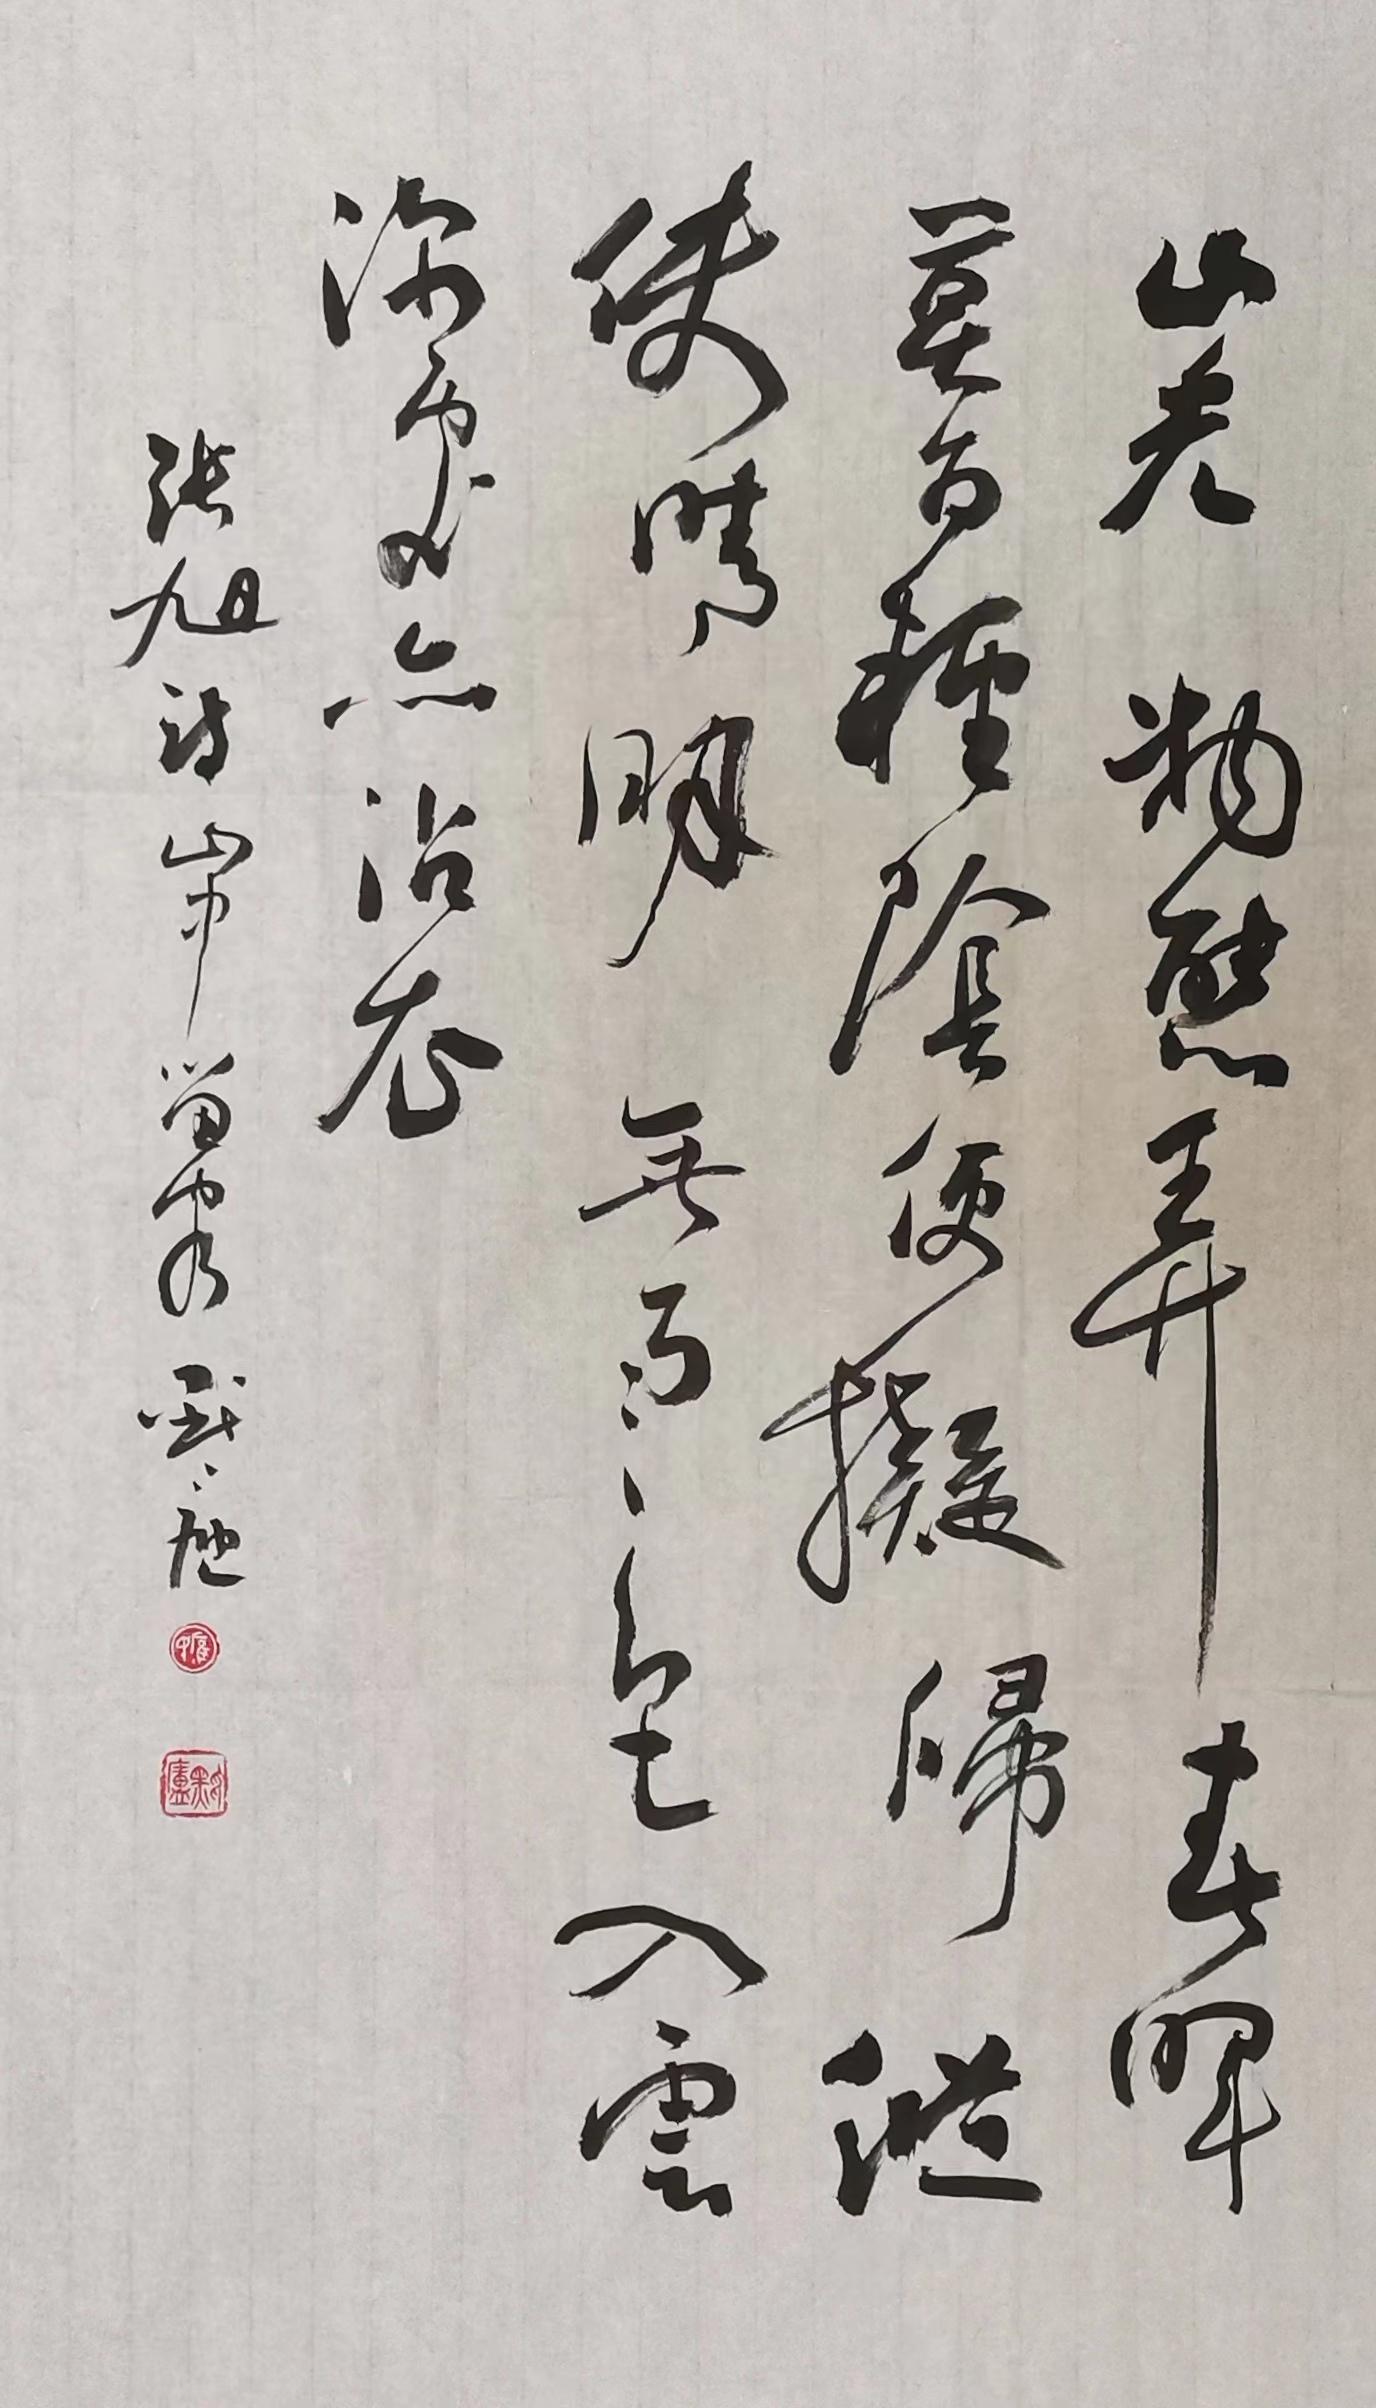 山光物態弄春暉
莫為輕陰便擬歸縱
使晴明無雨色入雲
深處亦沾衣
張旭詩山中留客